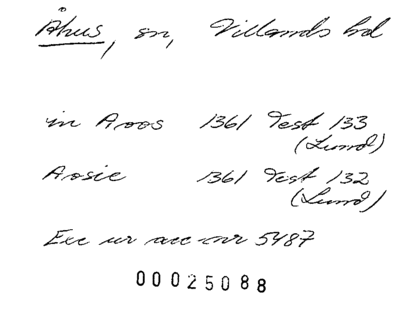 Åhus, sn, Villands hd
in Aoos 1361 Test 133
(Lund)
Aosie 1361 Test 132
(Lund)
Exc ur acc-nr 5487
00025088